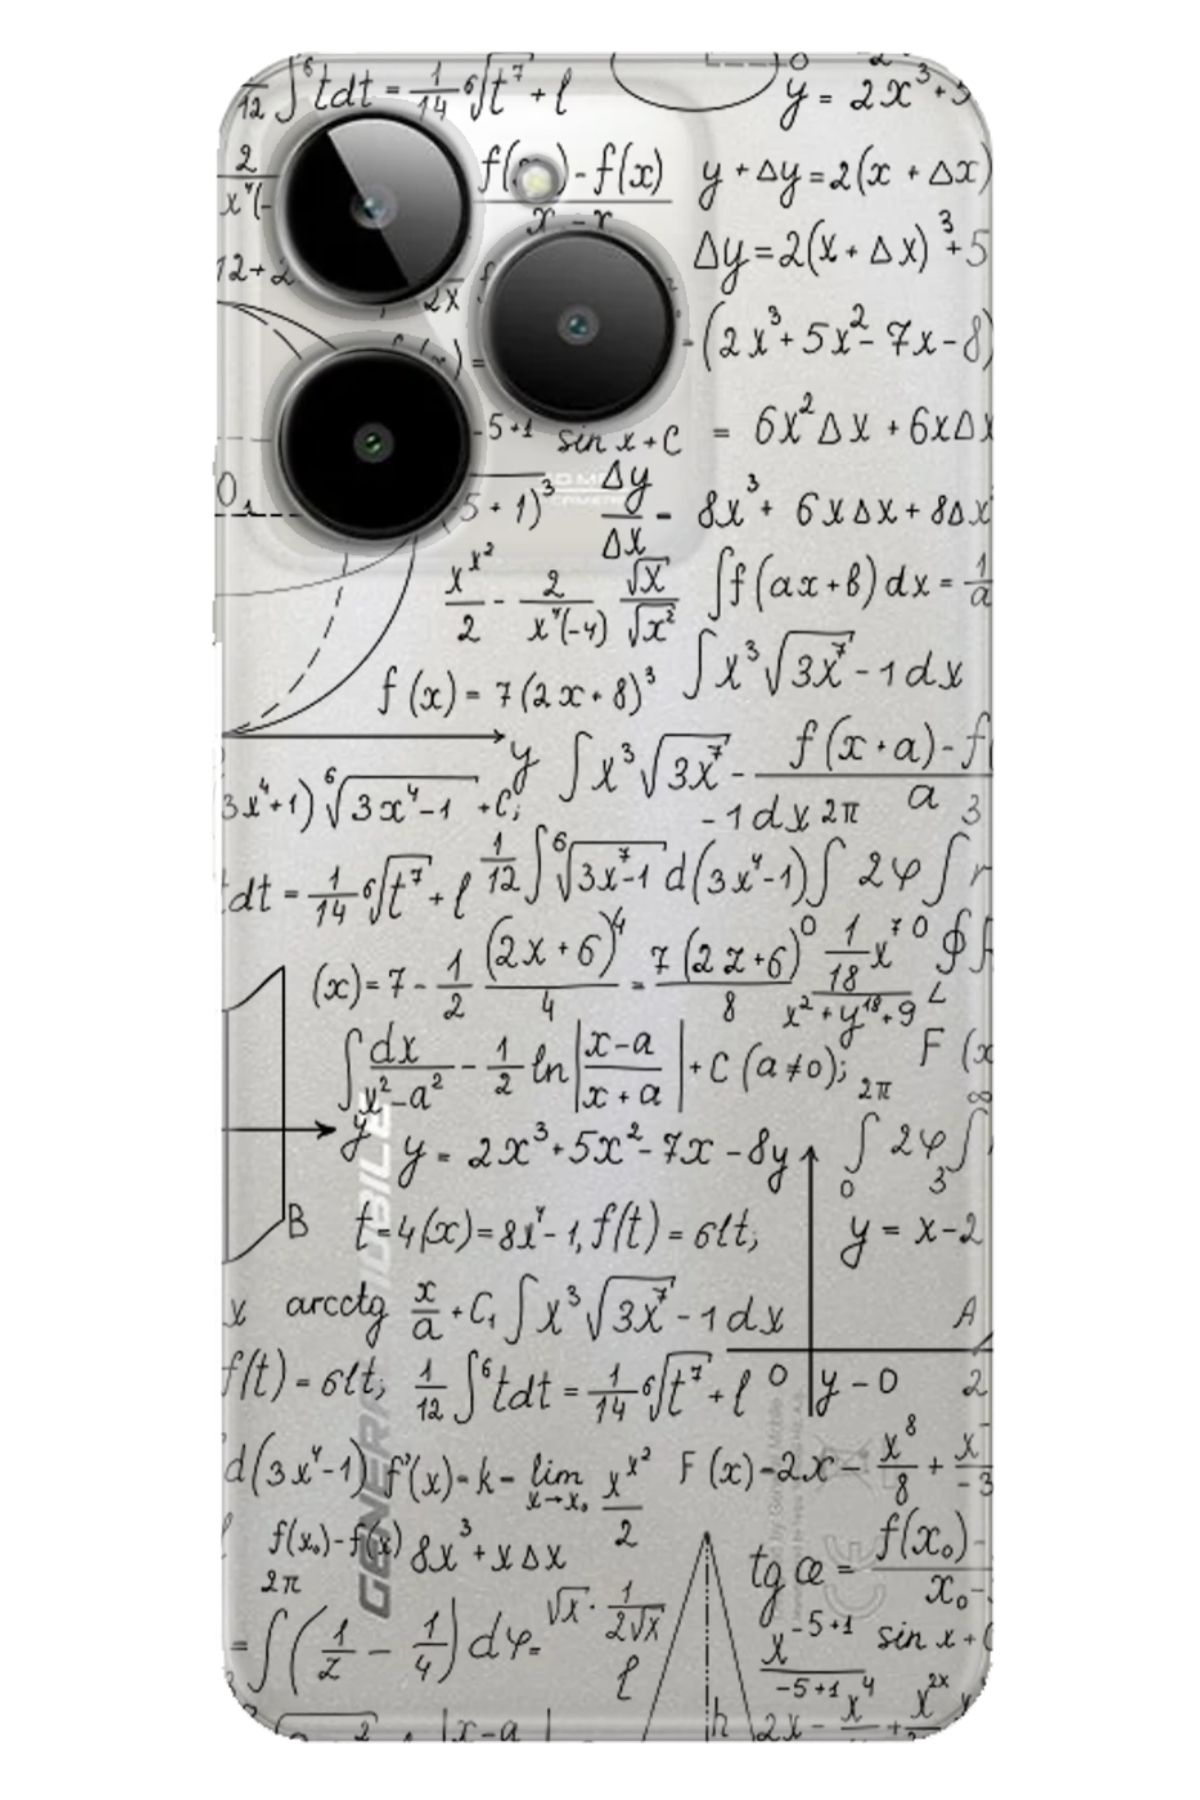 12 ∫⁶ tdt = 1/14 ⁶√t⁷ + l
y = 2x³+5
2/x⁴(-
f( )-f(x)
x - x
y + Δy = 2(x + Δx)
12+2
2x
Δy = 2(x + Δx)³+5
-(2x³+5x²-7x-8)
-5+1 sin x + C
= 6x²Δx + 6xΔx
0₁
5 + 1)³
Δy/Δx -
8x³+ 6xΔx + 8Δx
x^x²/2 - 2/x⁴(-4) √x/√x²
∫f(ax+b)dx = 1/a
f(x) = 7(2x+8)³
∫x³√3x⁷-1dx
y
∫x³√3x⁷ -
f(x+a)-f
a
-1dx 2π
3
3x⁴+1) ⁶√3x⁴-1 +C;
dt = 1/14 ⁶√t⁷ + l
1/12 ∫⁶√3x⁷-1 d(3x⁴-1) ∫ 2φ ∫ r
(x) = 7 - 1/2 (2x+6)⁴/4 = 7(2z+6)⁰/8
1/18 x⁷⁰
x²+y¹⁸+9
∮ f
∫ dx/x²-a² - 1/2 ln|x-a/x+a| + C (a≠0);
F (x
2π
∞
y
y = 2x³+5x²-7x-8y
∫ 2φ ∫
0 3
B
t=4(x)=8x⁴-1, f(t) = 6lt;
y = x-2
x arcctg x/a + C₁ ∫x³√3x⁷-1dx
A
f(t) = 6lt; 1/12 ∫⁶ tdt = 1/14 ⁶√t⁷ + l
0 y-0 2
d(3x⁴-1) f'(x)-k- lim x→x₀ x^x²/2
F(x)-2x- x⁸/8 + x⁻/-3
f(x₀)-f(x) 8x³+xΔx
2π
tg æ = f(x₀)-/x₀-
=∫(1/z - 1/4) dφ=
√x · 1/2√x
l
x⁻⁵⁺¹/-5+1 sin x+C
h
2x - x⁴ + x²ˣ
2 + |x-a|
GENERAL MOBILE
CE